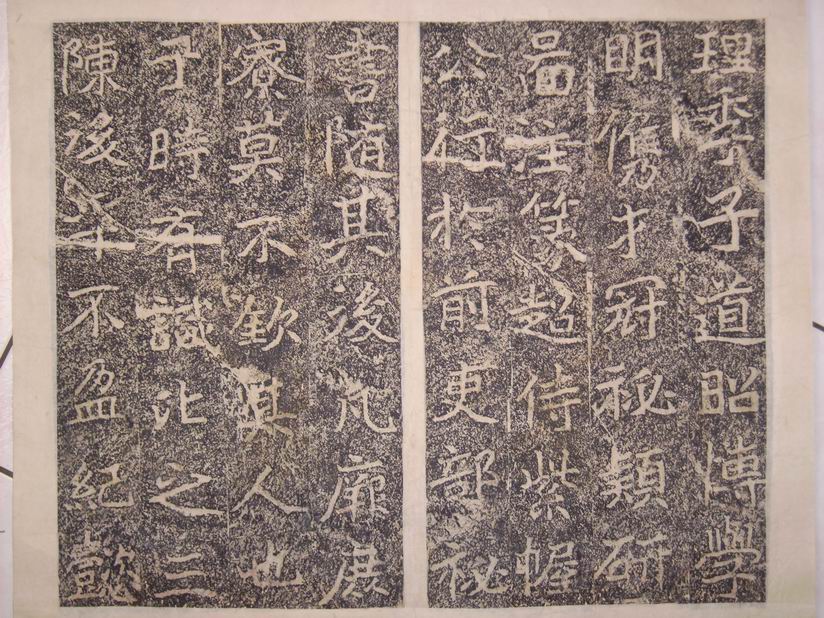 理季子道昭博學
明儁才冠秘穎研
啚注篆超侍紫幄
公行於前吏部秘
書隨其後凡厥庶
寮莫不欽其人也
于時有識比之三
陳後年不盈紀懿